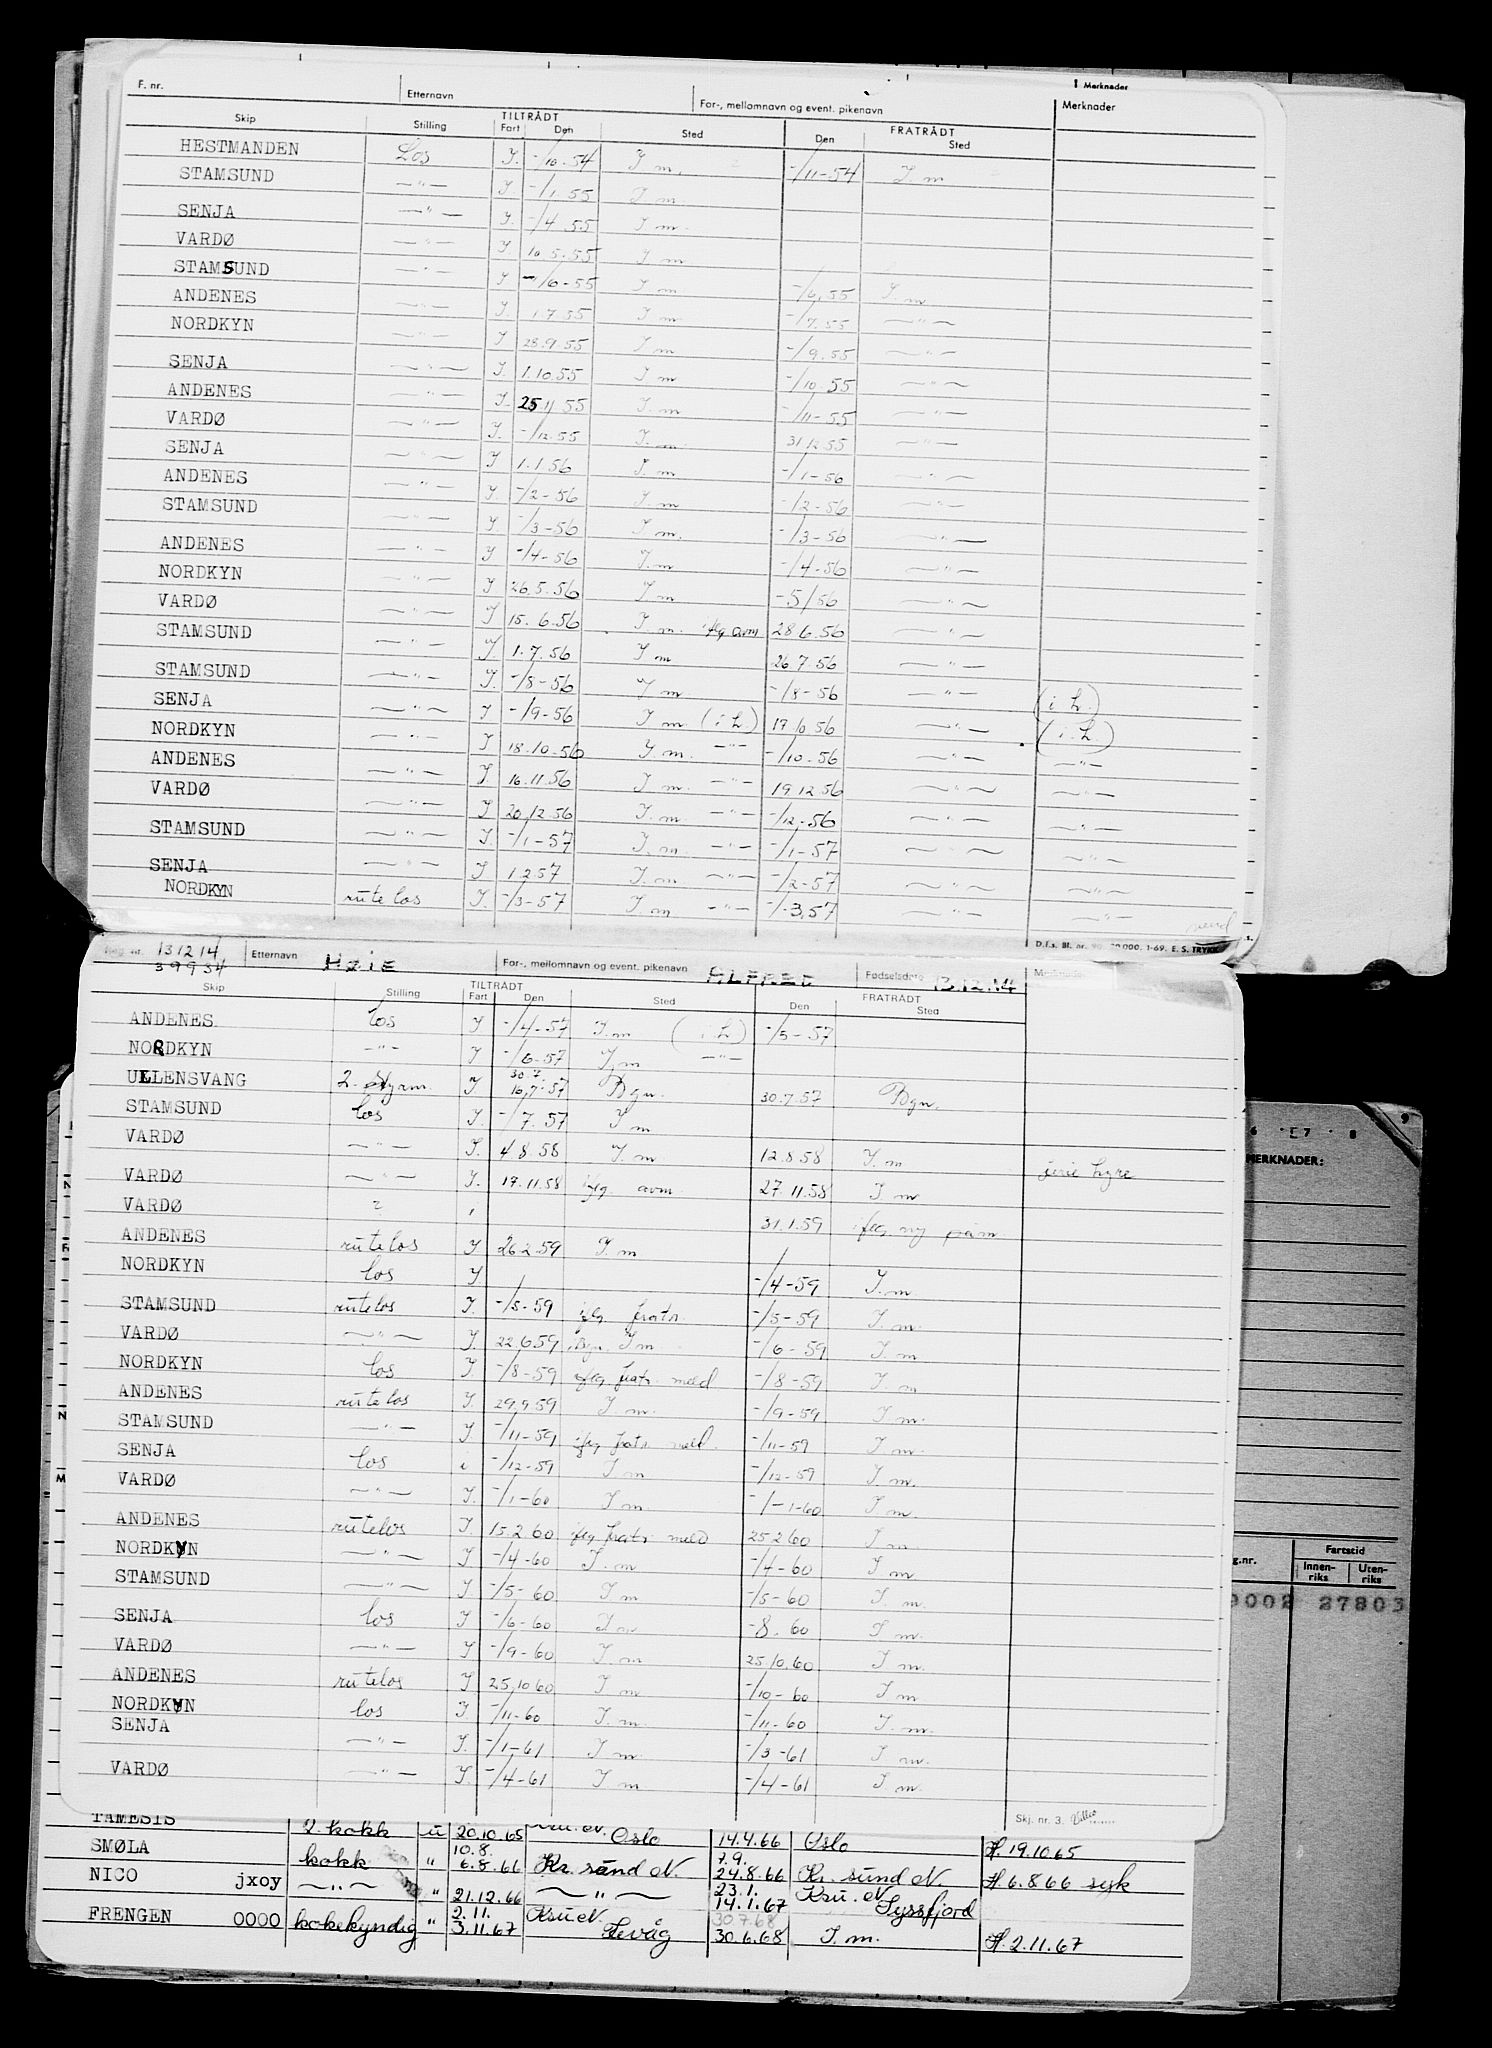 F. nr. Etternavn For-, mellomnavn og event. pikenavn Merknader
Skip Stilling TILTRÅDT Fart Den Sted FRATRÅDT Den Sted
HESTMANDEN Los I. -/10-54 I m. -/11-54 I. m
STAMSUND —"— I -/1.55 I m
SENJA —"— I. -/4.55 I m.
VARDØ —"— I. 10.5.55 I m
STAMSUND —"— I -/6-55 I m -/6.55 I. m
ANDENES —"— I. 1.7.55 I m -/7.55 —"—
NORDKYN —"— I 28.9.55 I m -/9.55 —"—
SENJA —"— I. 1.10.55 I m -/10.55 —"—
ANDENES —"— I. 25.11.55 I. m -/11-55 —"—
VARDØ —"— I. -/12.55 I. m. 31.12.55 —"—
SENJA —"— I 1.1.56 I. m -/1-56 —"—
ANDENES —"— I. -/2-56 I m -/2-56 —"—
STAMSUND —"— I. -/3-56 I m. -/3-56 —"—
ANDENES —"— I -/4-56 I. m -/4-56 —"—
NORDKYN —"— I 26.5.56 I m -5/56 —"—
VARDØ —"— I 15.6.56 I. m. iflg avm 28.6.56 —"—
STAMSUND —"— I. 1.7.56 I m 26.7.56 —"—
STAMSUND —"— I. -/8-56 I m. -/8-56 —"— (i L.)
SENJA —"— I -/9-56 I m. (i L.) 17.10.56 —"— (i L.)
NORDKYN —"— I 18.10.56 I m. —"— -/10.56 —"— —"—
ANDENES —"— I 16.11.56 I m. —"— 19.12.56 —"— —"—
VARDØ —"— I 20.12.56 I. m. —"— -/12-56 —"— —"—
STAMSUND —"— I. -/1-57 I. m. —"— -/1-57 —"— —"—
SENJA —"— I 1.2.57 I. m —"— -/2-57 —"— —"—
NORDKYN rutelos I. -/3-57 I. m —"— -/-3.57 —"— —"—
vend
D.f.s. Bl. nr. 1-69. E. S. TRYKK
Reg. nr. 131214 39934 Etternavn HØIE For-, mellomnavn og event. pikenavn ALFRED Fødselsdato 13.12.14 Merknader
Skip Stilling TILTRÅDT Fart Den Sted FRATRÅDT Den Sted
ANDENES los I -/4-57 I. m (i L) -/5-57
NORDKYN —"— I -/6-57 I. m —"—
ULLENSVANG 2. styrm. I 30.7. 16.7.57 Bgn. 30.7.57 Bgn.
STAMSUND los I. -/7.57 I m
VARDØ —"— I. 4.8.58 I. m. 12.8.58 I. m
VARDØ —"— I. 17.11.58 iflg. avm 27.11.58 I m
VARDØ 31.1.59 iflg
ANDENES rutelos I 26.2.59 I. m
NORDKYN los I / -/4-59 I. m
STAMSUND rutelos I. -/5-59 iflg fratr. -/5-59 I. m.
VARDØ —"— I. 22.6.59 Bgn. I m -/6-59 I. m
NORDKYN los I. -/8-59 iflg. fratr. meld -/8-59 I m
ANDENES rutelos I. 29.9.59 I. m. -/9-59 I m.
STAMSUND —"— I -/11-59 iflg fratr. meld. -/11-59 I m.
SENJA los i -/12-59 I m -/12-59 I m.
VARDØ —"— I. -/1-60 I m. -/-1-60 I m
ANDENES rutelos I. 15.2.60 iflg fratr. meld 25.2.60 I m
NORDKYN —"— I -/4-60 I. m -/4-60 I m
STAMSUND —"— I -/5-60 I m -/5-60 I. m.
SENJA los I -/6-60 I m -8.60 I m.
VARDØ —"— I -/9-60 I m 25.10.60 I m.
ANDENES rutelos I 25.10.60 I m -/10-60 I m
NORDKYN los I -/11-60 I. m. -/11-60 I m.
SENJA —"— I. -/1-61 I m. -/3-61 I m.
VARDØ —"— I. -/4-61 I m -/4-61 I m.
Skj. nr. 3.
6 7 8 9
MERKNADER:
g.nr. Fartstid
Innenriks Utenriks
0002 27803
TAMESIS 2. kokk u 20.10.65 Oslo 14.4.66 Oslo H 19.10.65
SMØLA kokk " 10.8. 6.8.66 Kr. sund N. 7.9. 24.8.66 Kr. sund N. H 6.8.66 syk
NICO jxoy —"— " 21.12.66 —"— 23.1. 14.1.67 Ksu. N Syssfjord
FRENGEN 0000 kokekyndig " 2.11. 3.11.67 Ksu N. Sevåg 30.7.68 30.6.68 I. m. H 2.11.67